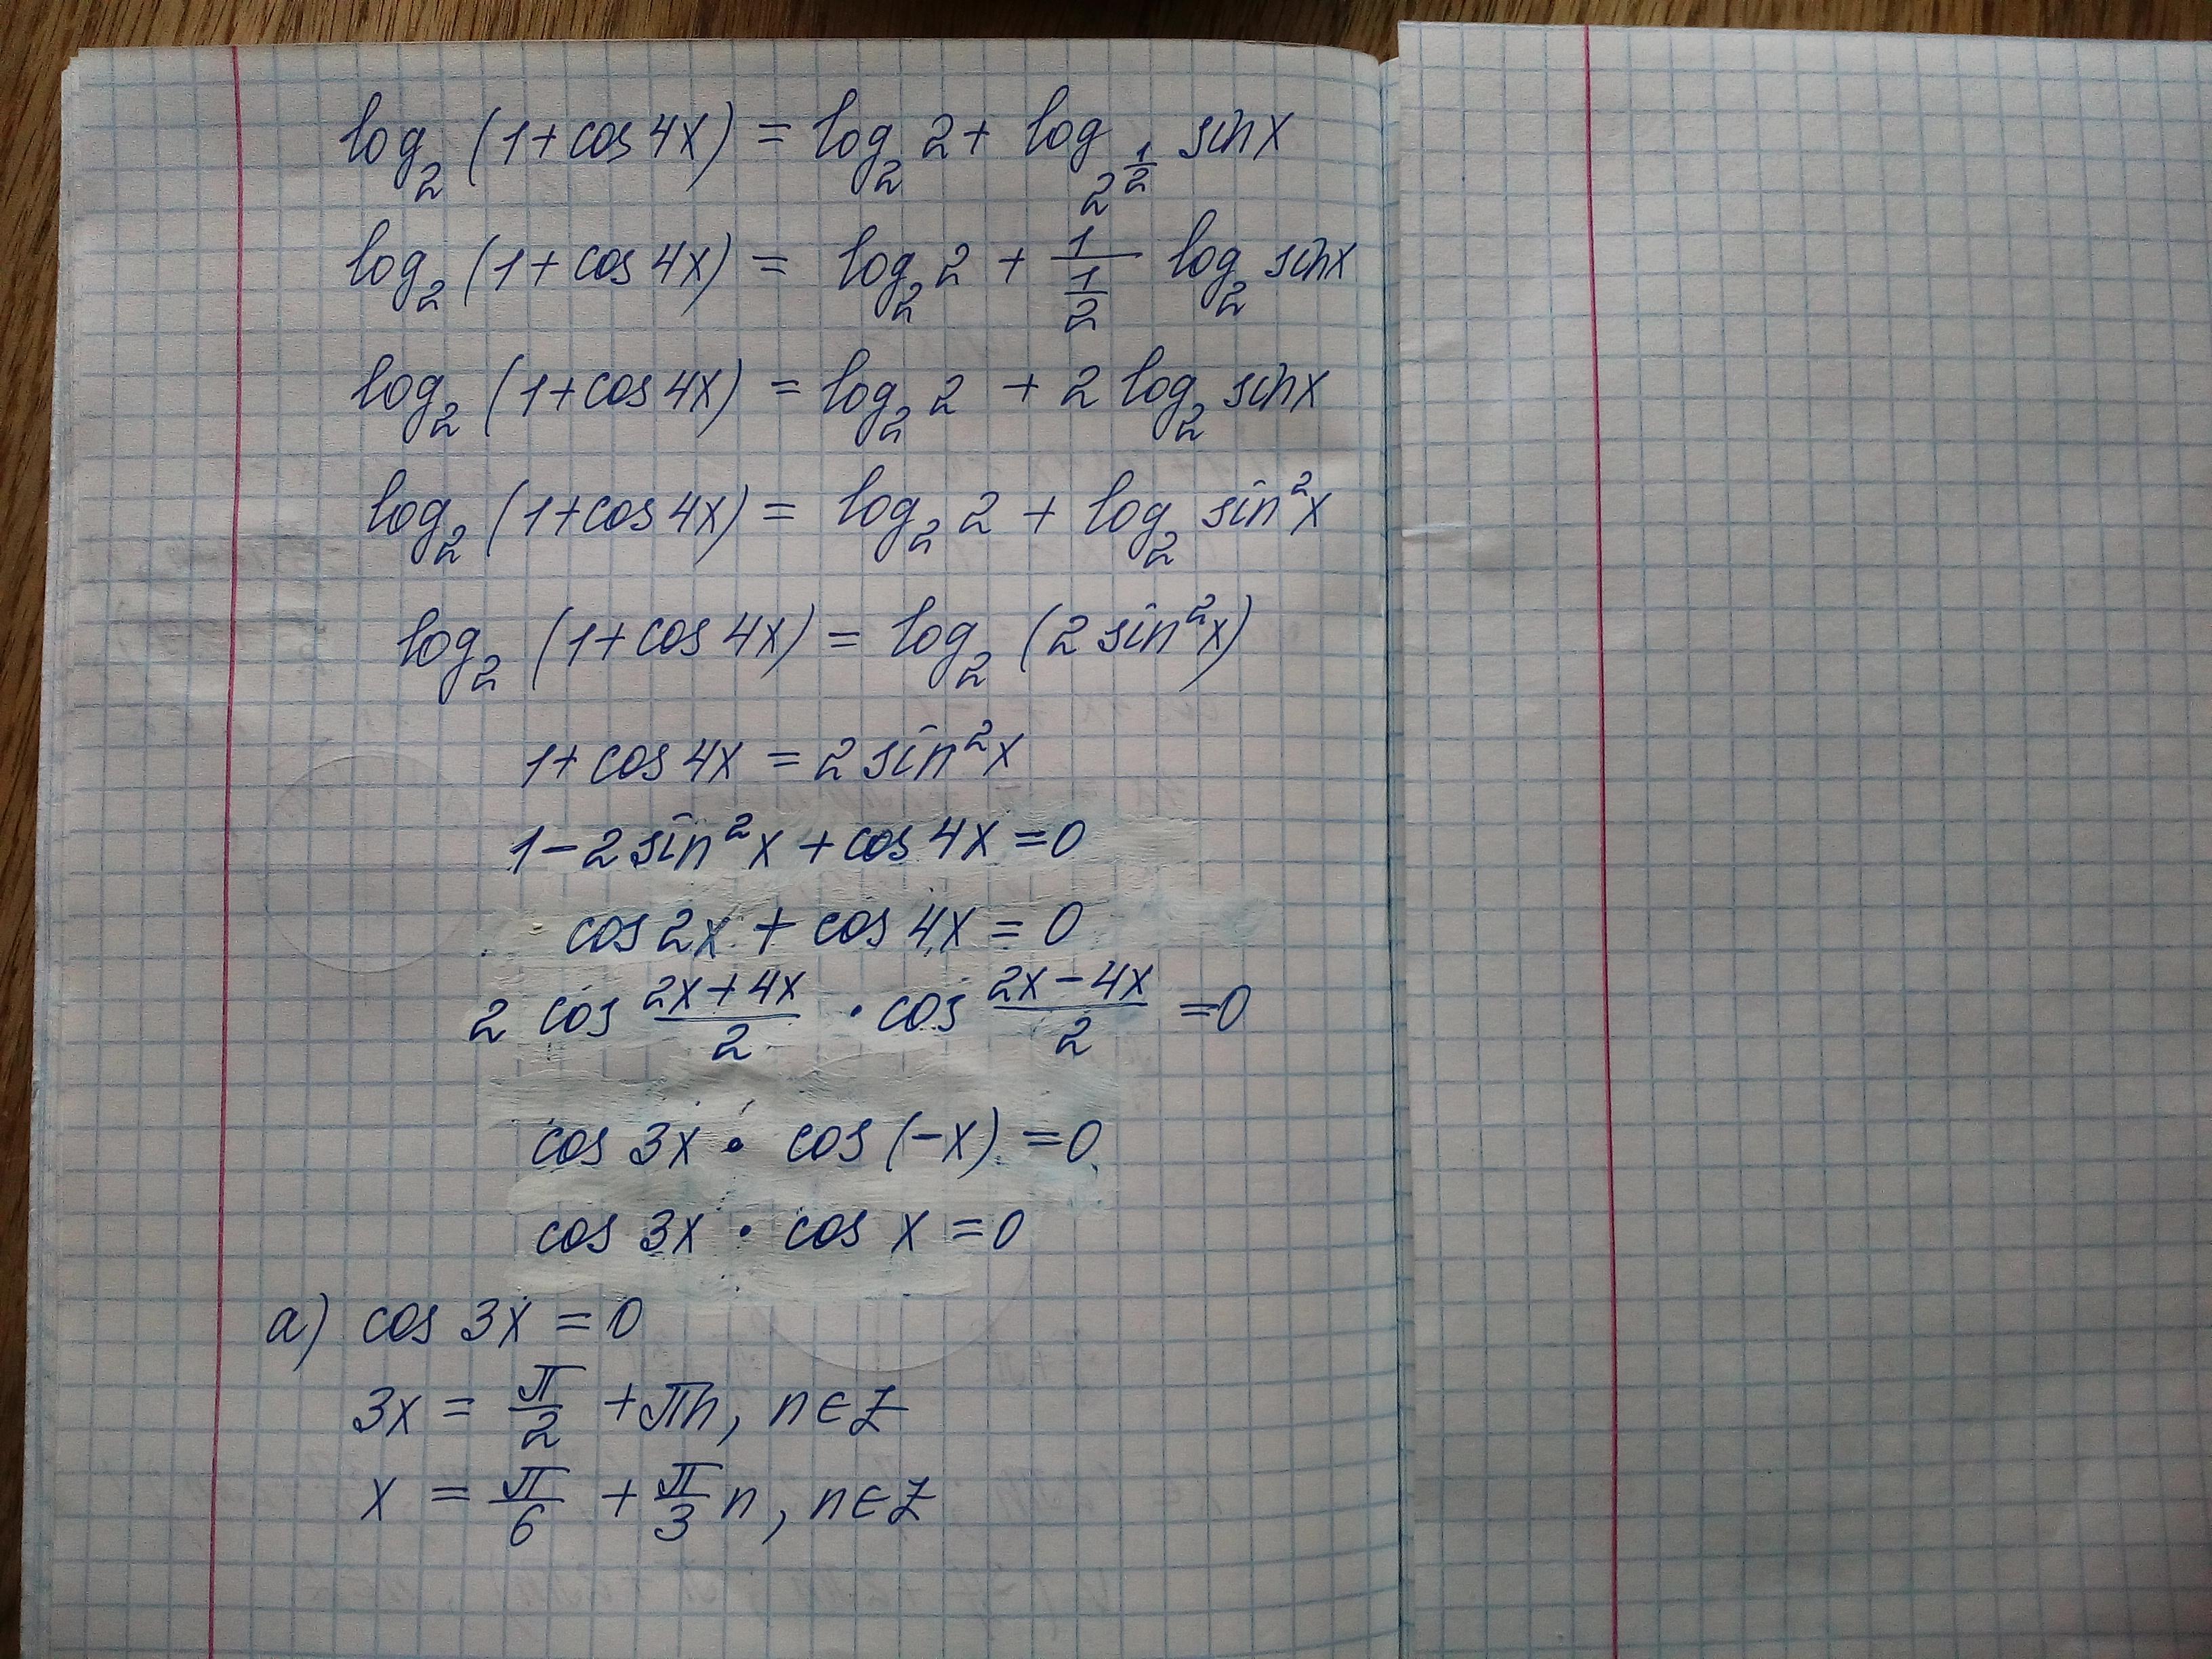 log₂ (1+cos 4x) = log₂ 2 + log_{2^{1/2}} sinx
log₂ (1+cos 4x) = log₂ 2 + 1/(1/2) log₂ sinx
log₂ (1+cos 4x) = log₂ 2 + 2 log₂ sinx
log₂ (1+cos 4x) = log₂ 2 + log₂ sin²x
log₂ (1+cos 4x) = log₂ (2 sin²x)
1+cos 4x = 2 sin²x
1-2 sin²x + cos 4x = 0
cos 2x + cos 4x = 0
2 cos (2x+4x)/2 · cos (2x-4x)/2 = 0
cos 3x · cos (-x) = 0
cos 3x · cos x = 0
а) cos 3x = 0
3x = π/2 + πn, n∈Z
x = π/6 + π/3 n, n∈Z